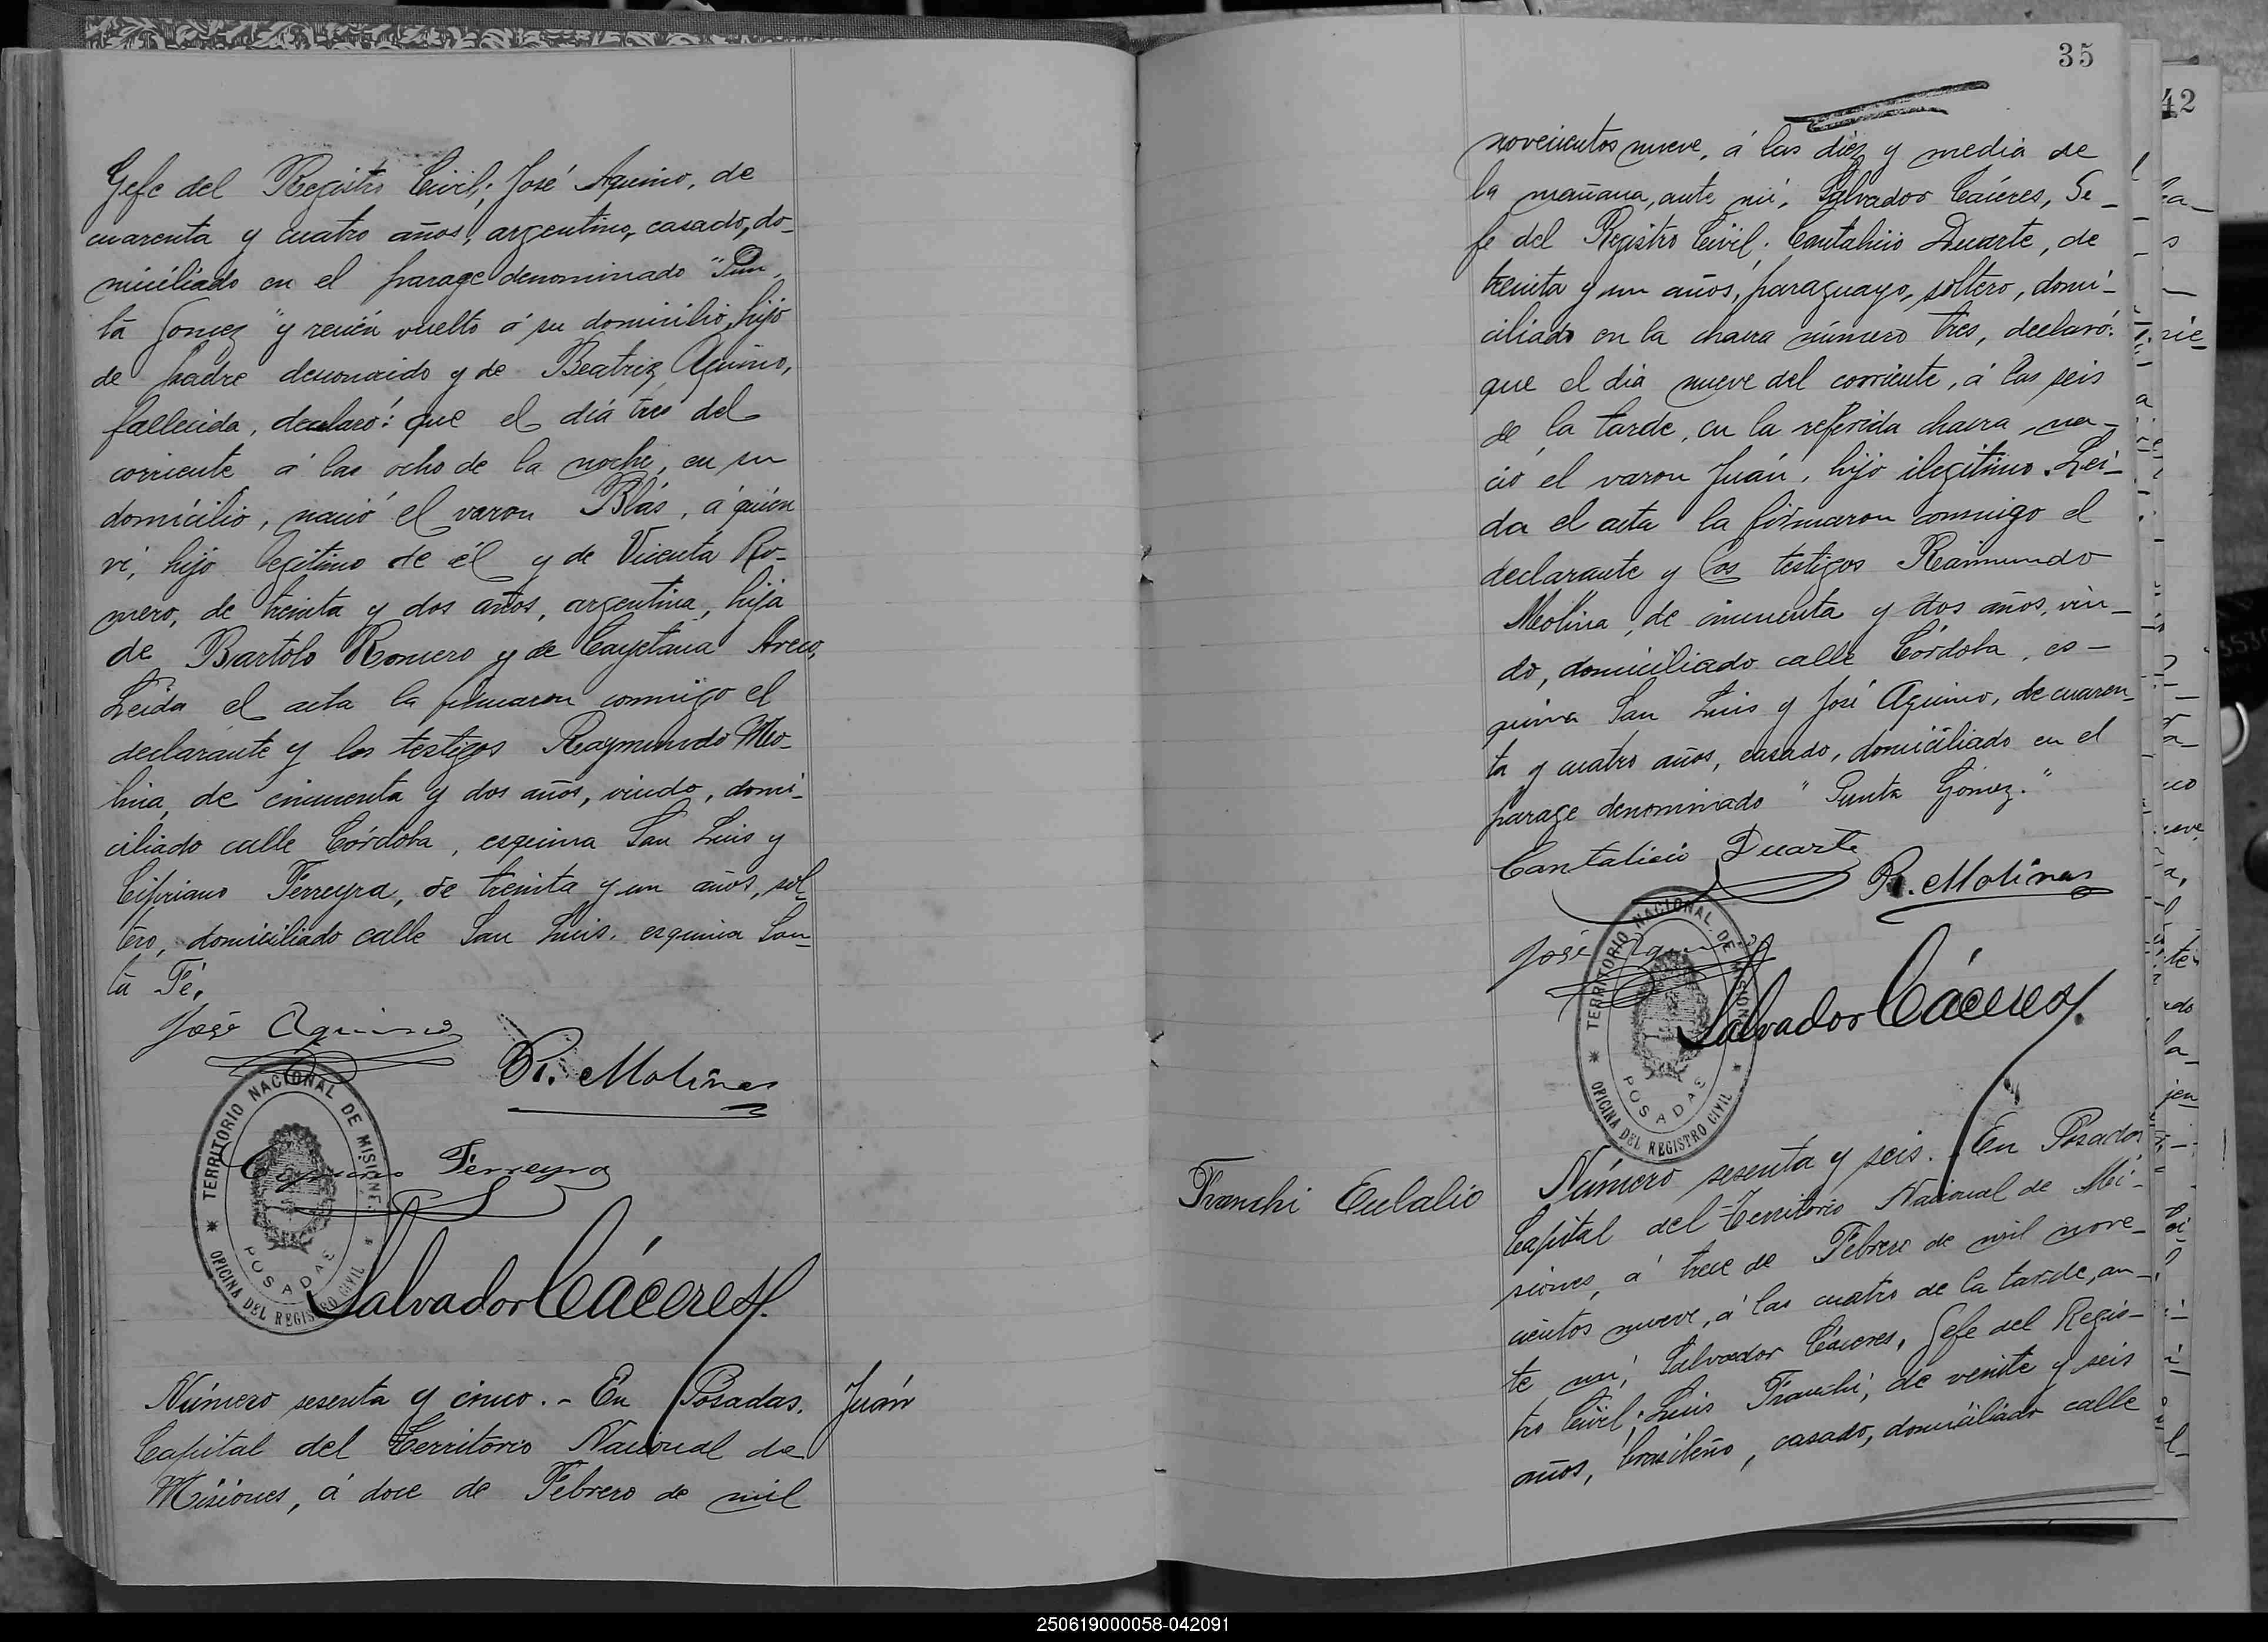 Gefe del Registro Civil; José Aquino, de
cuarenta y cuatro años, argentino, casado, do-
miciliado en el parage denominado "Pun-
ta Gomez" y recién vuelto á su domicilio, hijo
de padre desconocido y de Beatriz Aquino,
fallecida, declaró: que el día tres del
corriente á las ocho de la noche, en su
domicilio, nació el varon Blás, á quién
ví, hijo legítimo de él y de Vicenta Ro-
mero, de treinta y dos años, argentina, hija
de Bartolo Romero y de Cayetana Areco,
Leida el acta la firmaron conmigo el
declarante y los testigos Raymundo Mo-
lina, de cincuenta y dos años, viudo, domi-
ciliado calle Córdoba, esquina San Luis y
Cipriano Ferreyra, de treinta y un años, sol-
tero, domiciliado calle San Luis, esquina San-
ta Fé.
José Aquino
R. Molinas
TERRITORIO NACIONAL DE MISIONES
POSADAS
OFICINA DEL REGISTRO CIVIL
Cipriano Ferreyra
Salvador Cáceres
Número sesenta y cinco. - En Posadas,
Juán
Capital del Territorio Nacional de
Misiones, á doce de Febrero de mil
35
42
novecientos nueve, á las diez y media de
la mañana, ante mí, Salvador Cáceres, Ge-
fe del Registro Civil; Cantalicio Duarte, de
treinta y un años, paraguayo, soltero, domi-
ciliado en la chacra número tres, declaró:
que el dia nueve del corriente, á las seis
de la tarde, en la referida chacra, na-
ció el varon Juán, hijo ilegitimo. Lei-
da el acta la firmaron conmigo el
declarante y los testigos Raimundo
Molina, de cincuenta y dos años, viu-
do, domiciliado calle Córdoba, es-
quina San Luis y José Aquino, de cuaren-
ta y cuatro años, casado, domiciliado en el
parage denominado "Punta Gómez."
Cantalicio Duarte
R. Molinas
José Aquino
TERRITORIO NACIONAL DE MISIONES
POSADAS
OFICINA DEL REGISTRO CIVIL
Salvador Cáceres
Franchi Eulalio
Número sesenta y seis. - En Posadas
Capital del Territorio Nacional de Mi-
siones, á trece de Febrero de mil nove-
cientos nueve, á las cuatro de la tarde, an-
te mí, Salvador Cáceres, Gefe del Regis-
tro Civil; Luis Franchi, de veinte y seis
años, brasileño, casado, domiciliado calle
250619000058-042091